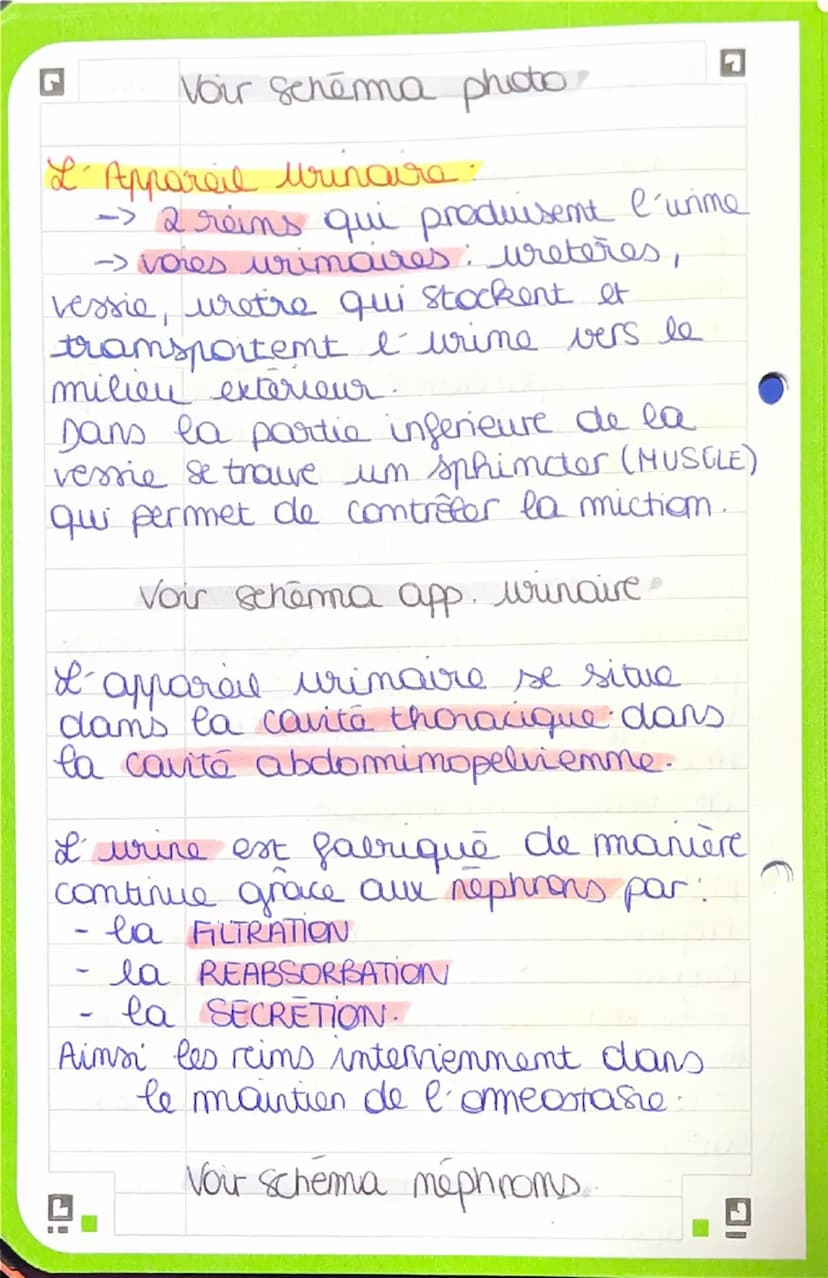 Voir schéma photo
L'Appareil Urinaire :
-> 2 reins qui produisent l'urine
-> voies urinaires : uretères,
vessie, uretre qui stockent et
transportent l'urine vers le
milieu extérieur.
Dans la partie inferieure de la
vessie se trouve un sphincter (MUSCLE)
qui permet de contrôler la miction.
Voir schéma app. urinaire
L'appareil urinaire se situe
dans la cavité thoracique : dans
la cavité abdominopelvienne.
L'urine est fabriqué de manière
continue grâce aux néphrons par :
- la FILTRATION
- la REABSORBATION
- la SECRÉTION.
Ainsi les reins interviennent dans
le maintien de l'omeostasie.
Voir schéma néphrons.